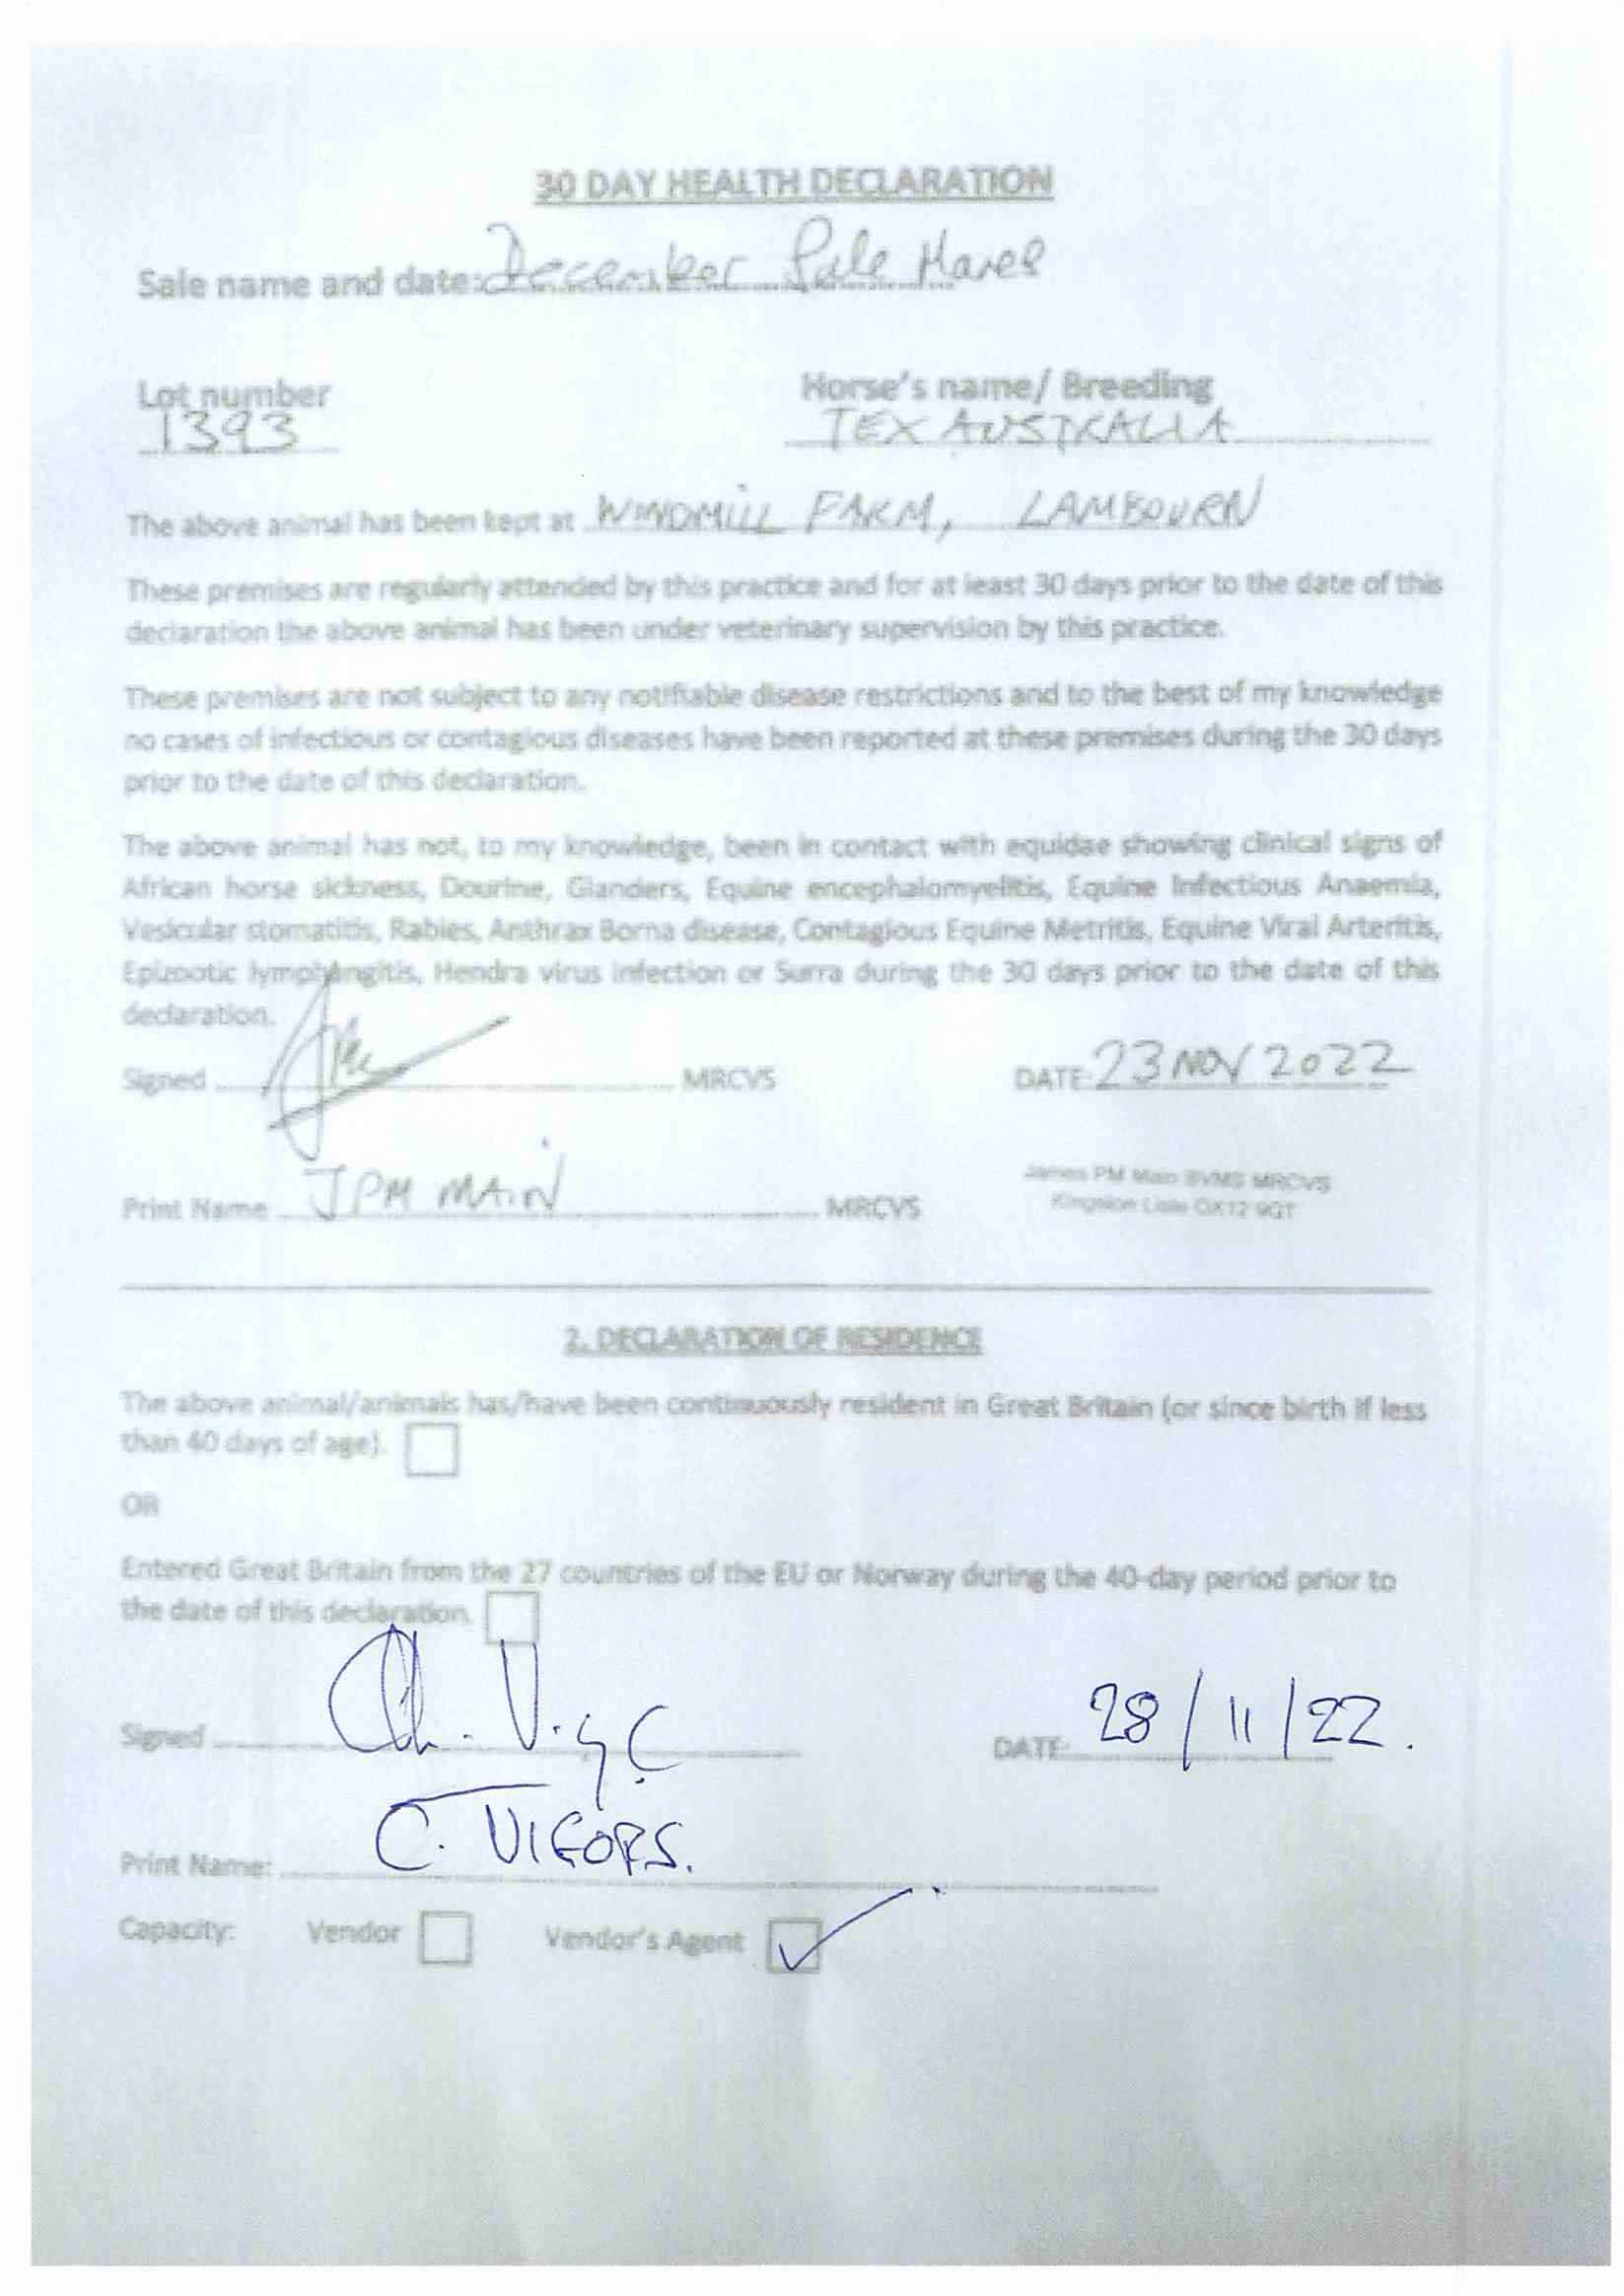 30 DAY HEALTH DECLARATION
Sale name and date: December Sale Mares
Lot number
1393
Horse's name/ Breeding
TEX AUSTRALIA
The above animal has been kept at WINDMILL FARM, LAMBOURN
These premises are regularly attended by this practice and for at least 30 days prior to the date of this
declaration the above animal has been under veterinary supervision by this practice.
These premises are not subject to any notifiable disease restrictions and to the best of my knowledge
no cases of infectious or contagious diseases have been reported at these premises during the 30 days
prior to the date of this declaration.
The above animal has not, to my knowledge, been in contact with equidae showing clinical signs of
African horse sickness, Dourine, Glanders, Equine encephalomyelitis, Equine Infectious Anaemia,
Vesicular stomatitis, Rabies, Anthrax Borna disease, Contagious Equine Metritis, Equine Viral Arteritis,
Epizootic lymphangitis, Hendra virus infection or Surra during the 30 days prior to the date of this
declaration.
Signed MRCVS DATE: 23 NOV 2022
Print Name JPM MAIN MRCVS
James PM Main BVMS MRCVS
Kingston Lisle OX12 9QT
2. DECLARATION OF RESIDENCE
The above animal/animals has/have been continuously resident in Great Britain (or since birth if less
than 40 days of age).
OR
Entered Great Britain from the 27 countries of the EU or Norway during the 40-day period prior to
the date of this declaration.
Signed DATE: 28/11/22.
Print Name: C. VIGORS.
Capacity: Vendor Vendor's Agent ✓